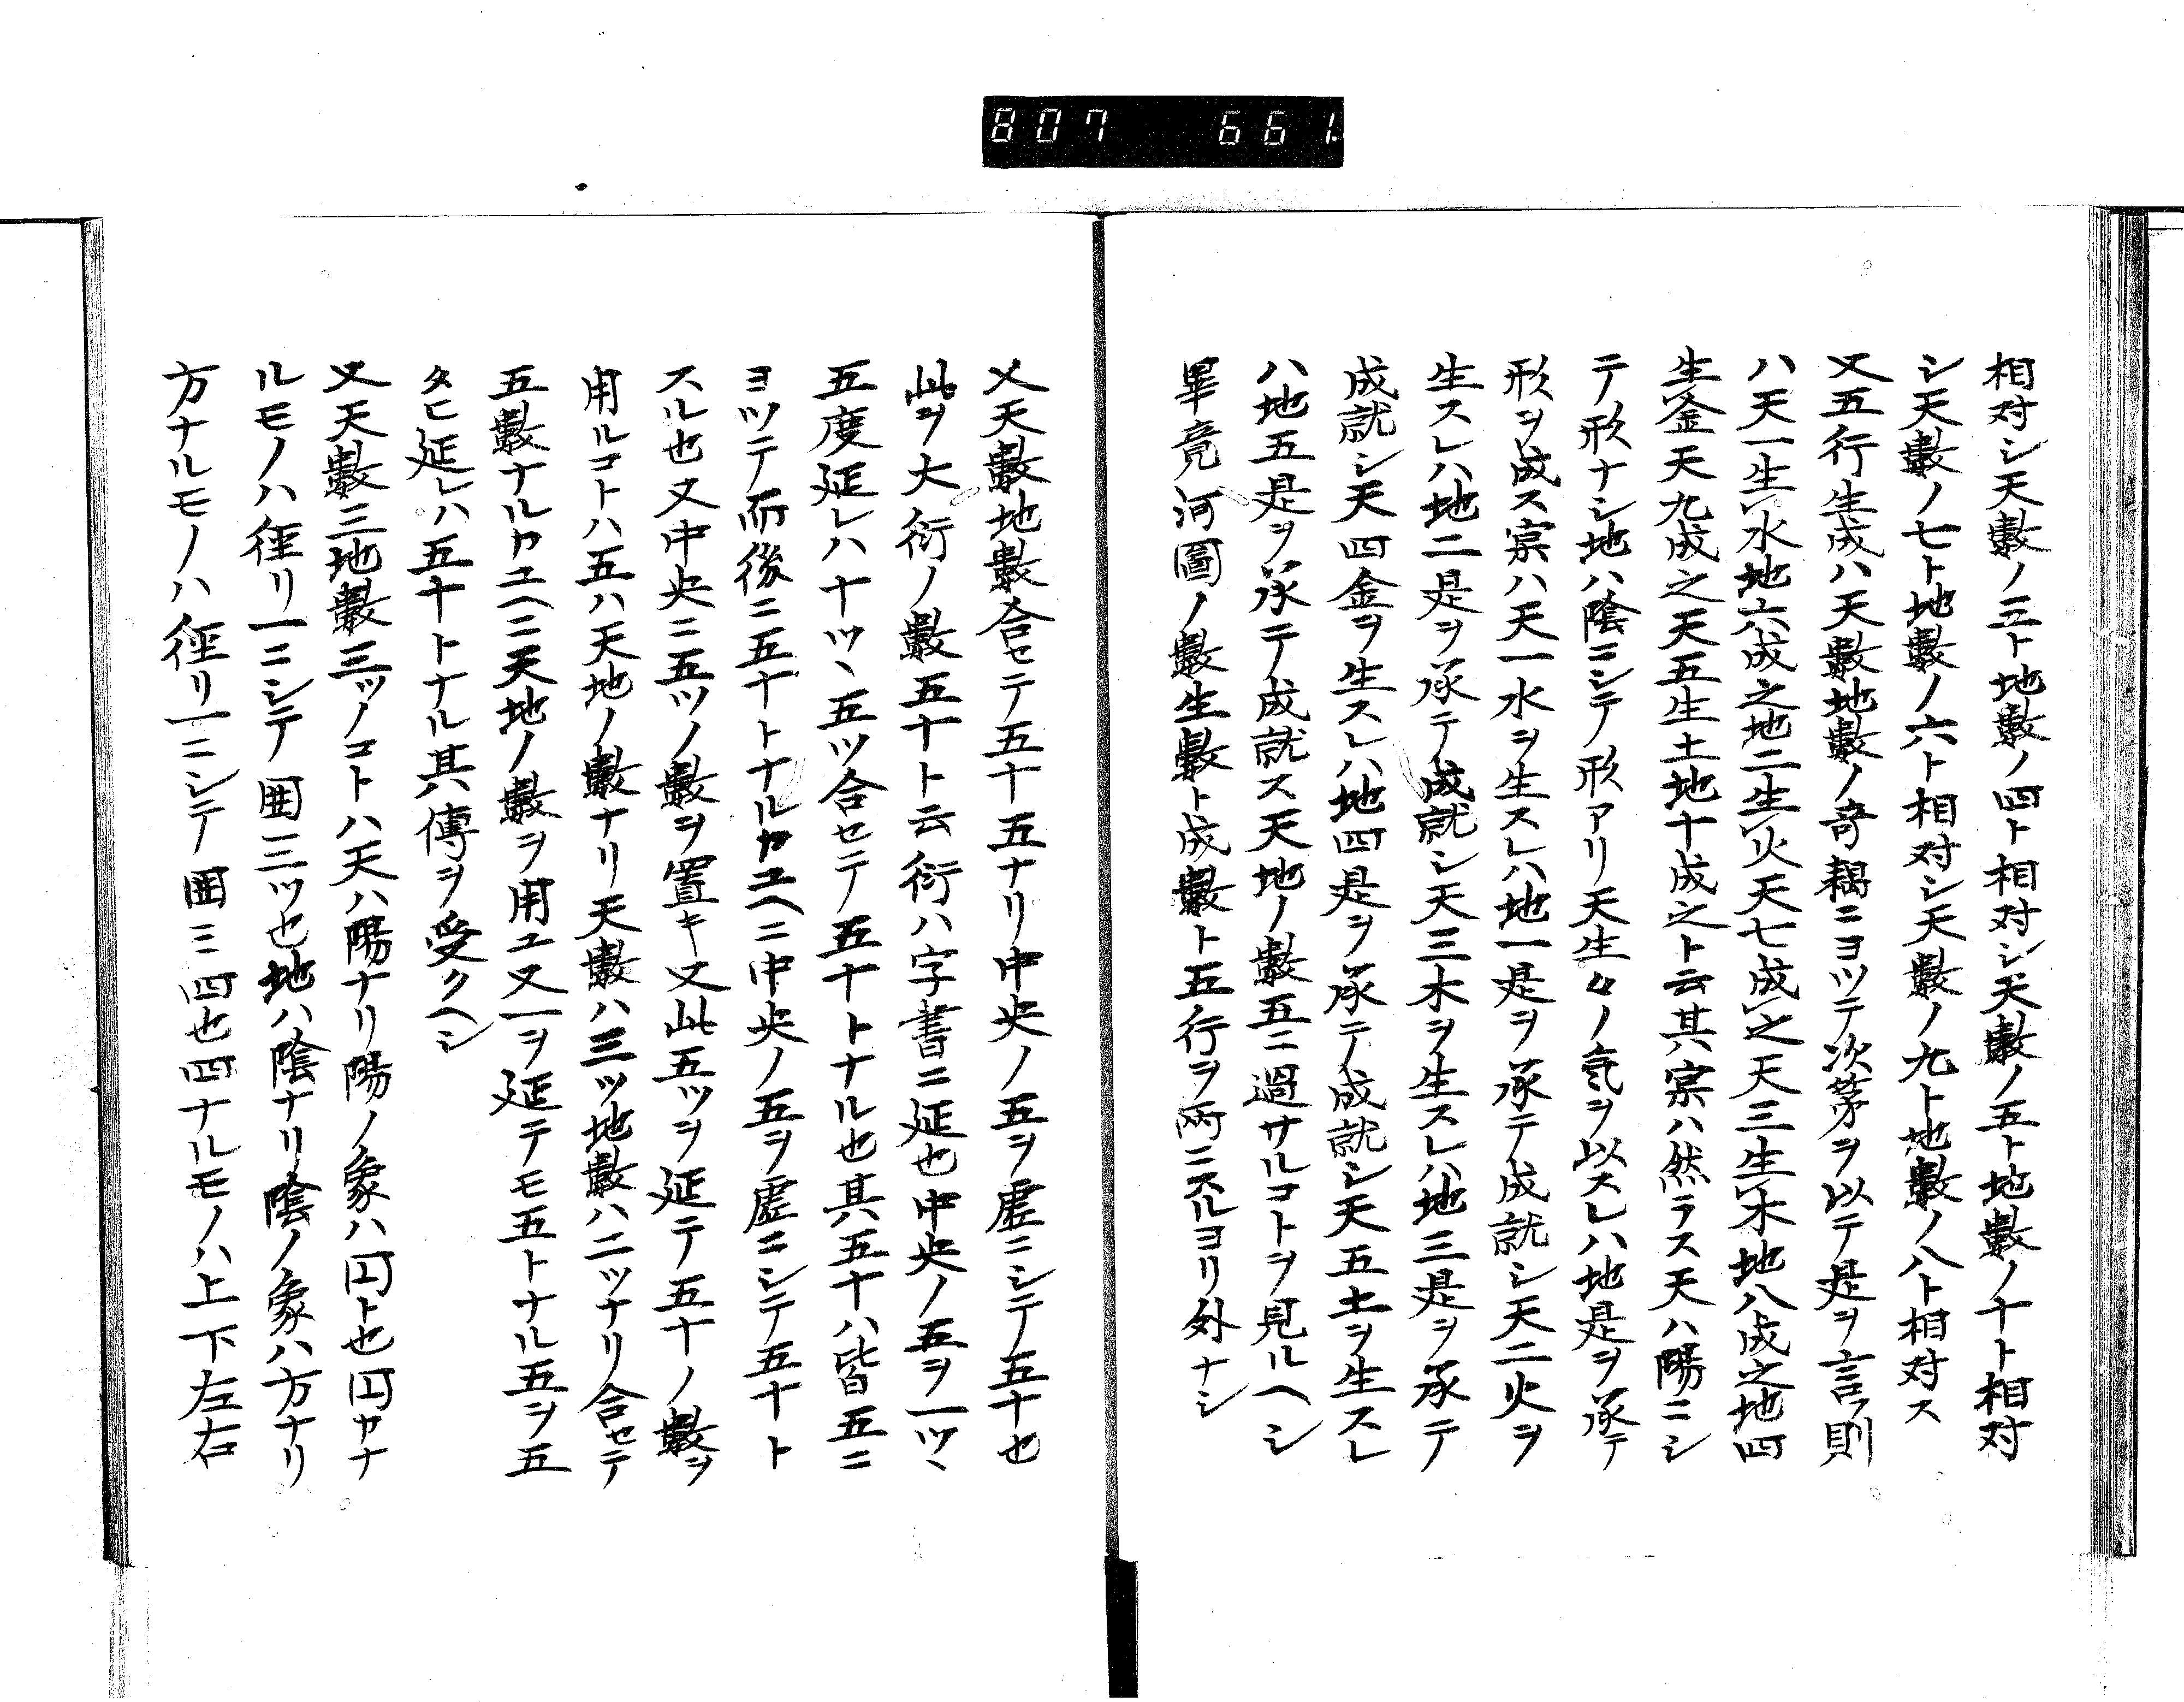 807 661
相対シ天數ノ三ト地數ノ四ト相対シ天數ノ五ト地數ノ十ト相対
シ天數ノ七ト地數ノ六ト相対シ天數ノ九ト地數ノ八ト相対ス
又五行生成ハ天數地數ノ竒耦ニヨツテ次苐ヲ以テ是ヲ言則
ハ天一生水地六成之地二生火天七成之天三生木地八成之地四
生金天九成之天五生土地十成之ト云其実ハ然ラス天ハ陽ニシ
テ形ナシ地ハ陰ニシテ形アリ天生々ノ気ヲ以スレハ地是ヲ承テ
形ヲ成ス実ハ天一水ヲ生スレハ地一是ヲ承テ成就シ天二火ヲ
生スレハ地二是ヲ承テ成就シ天三木ヲ生スレハ地三是ヲ承テ
成就シ天四金ヲ生スレハ地四是ヲ承テ成就シ天五土ヲ生スレ
ハ地五是ヲ承テ成就ス天地ノ數五ニ過サルコトヲ見ルヘシ
畢竟河圖ノ數生數ト成數ト五行ヲ兩ニスルヨリ外ナシ
又天數地數合セテ五十五ナリ中央ノ五ヲ虚ニシテ五十也
此ヲ大衍ノ數五十ト云衍ハ字書ニ延也中央ノ五ヲ一ツヽ
五度延レハ十ツヽ五ツ合セテ五十トナル也其五十ハ皆五ニ
ヨツテ而後ニ五十トナルカユヘニ中央ノ五ヲ虚ニシテ五十ト
スル也又中央ニ五ツノ數ヲ置キ又此五ツヲ延テ五十ノ數ヲ
用ルコトハ五ハ天地ノ數ナリ天數ハ三ツ地數ハ二ツナリ合セテ
五數ナルカユヘニ天地ノ數ヲ用ユ又一ヲ延テモ五トナル五ヲ五
タヒ延レハ五十トナル其傳ヲ受クヘシ
又天數三地數三ツノコトハ天ハ陽ナリ陽ノ象ハ円ト也円カナ
ルモノハ径リ一ニシテ囲三ツ也地ハ陰ナリ陰ノ象ハ方ナリ
方ナルモノハ径リ一ニシテ囲ミ四也四ナルモノハ上下左右